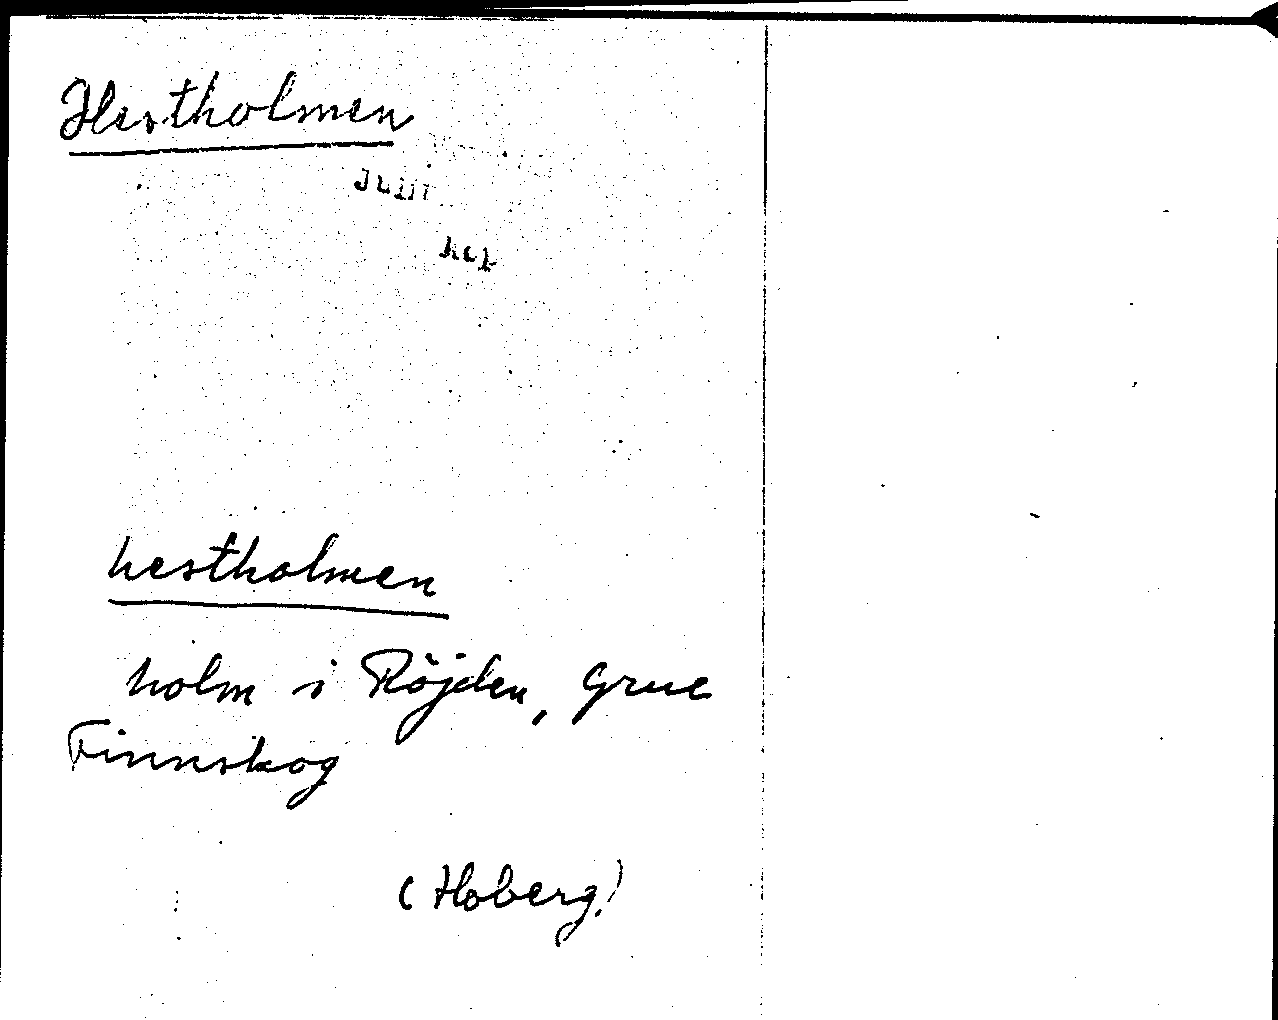 Hestholmen
hestholmen
holm i Röjden, Grue
Finnskog
(Hoberg)